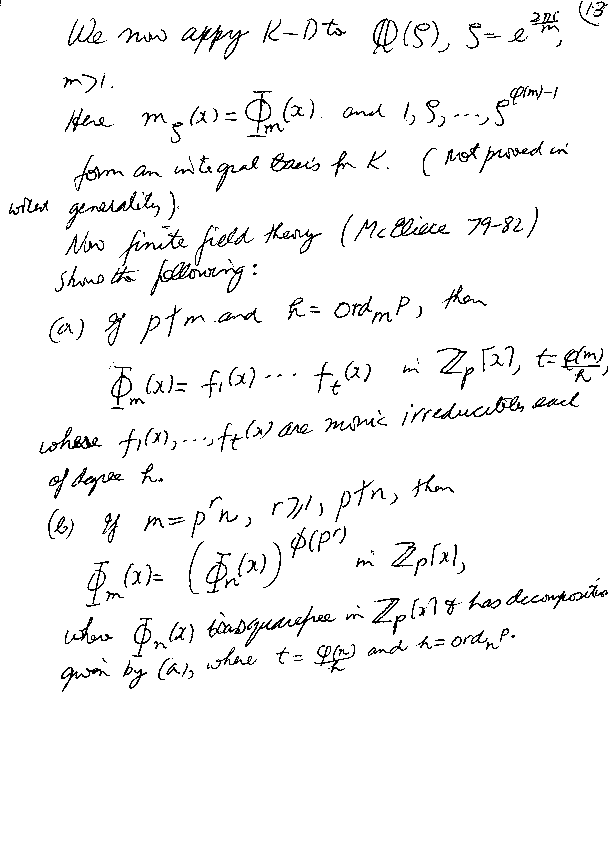 (13
We now appy K-D to ℚ(ζ), ζ = e^{2πi/m},
m>1.
Here m_ζ(x) = Φ_m(x) and 1, ζ, ..., ζ^{φ(m)-1}
form an integral basis for K. (Not proved in
generality).
Now finite field theory (McEliece 79-82)
shows the following:
(a) If p∤m and h = ord_m p, then
Φ_m(x) = f_1(x) ··· f_t(x) in ℤ_p[x], t = φ(m)/h,
where f_1(x), ..., f_t(x) are monic irreducibles each
of degree h.
(b) If m = p^r n, r≥1, p∤n, then
Φ_m(x) = (Φ_n(x))^{φ(p^r)} in ℤ_p[x],
where Φ_n(x) is squarefree in ℤ_p[x] & has decomposition
given by (a), where t = φ(n)/h and h = ord_n p.